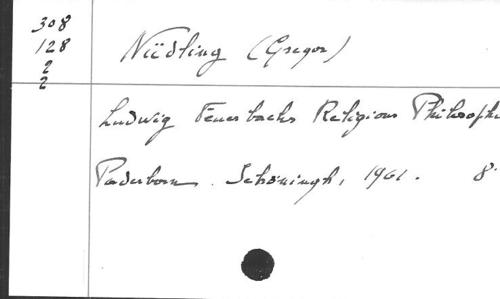 308
128
2
2
Nüdling (Gregor)
Ludwig Feuerbachs Religions Philosophi
Paderborn. Schöningh, 1961. 8.